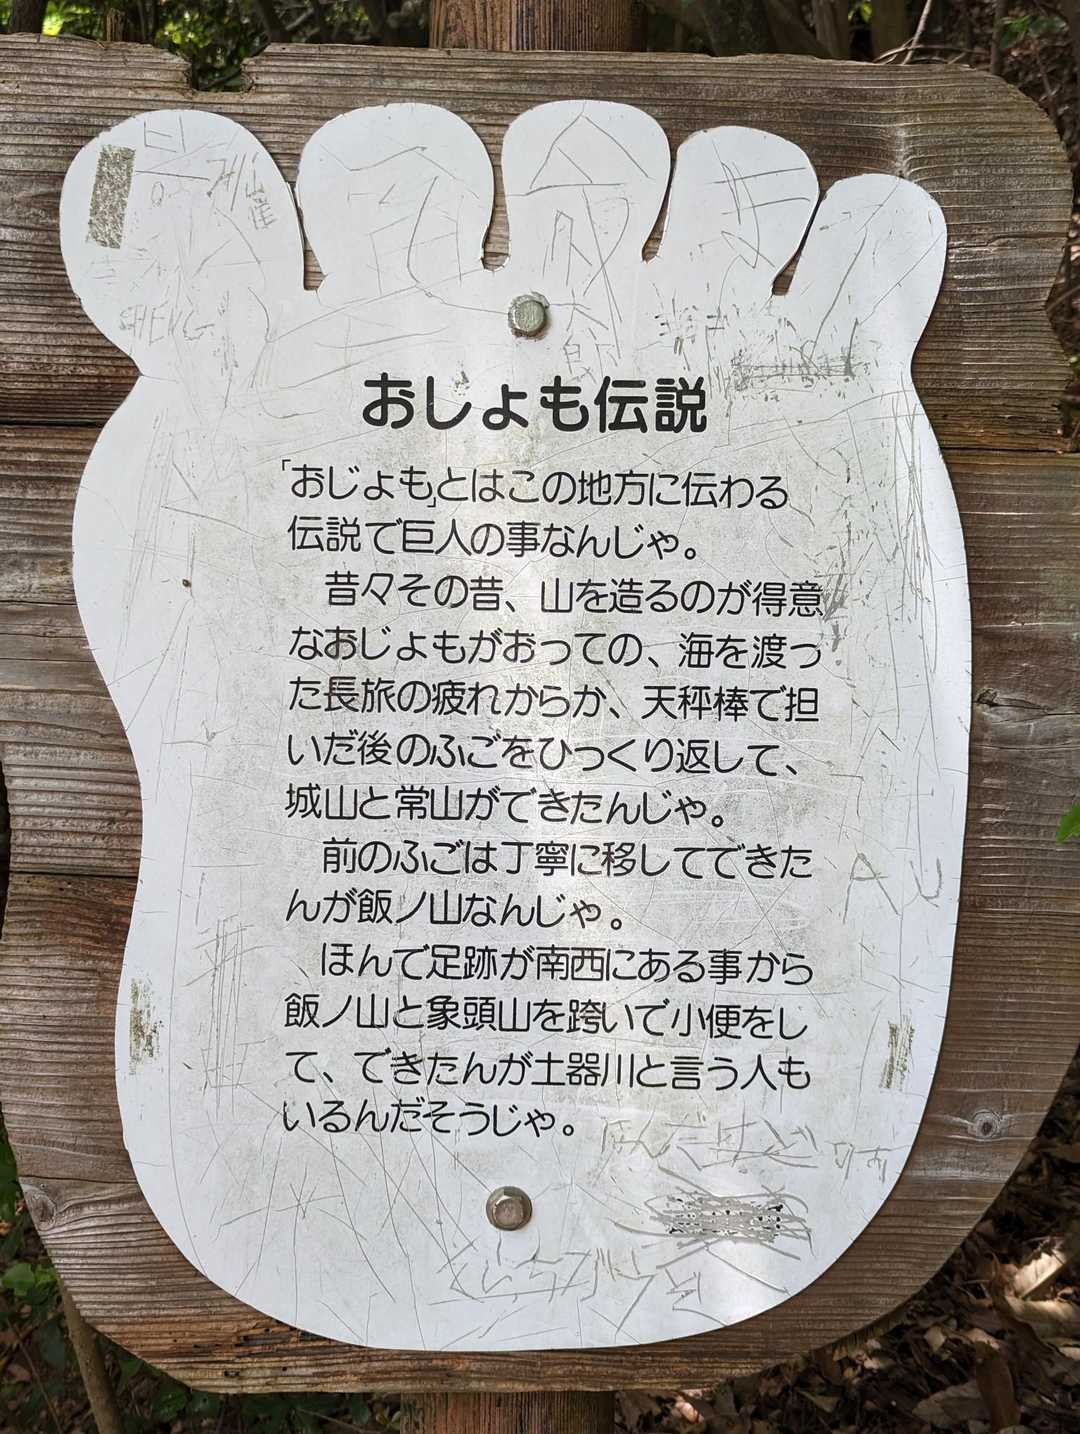 おじょも伝説
「おじょも」とはこの地方に伝わる
伝説で巨人の事なんじゃ。
昔々その昔、山を造るのが得意
なおじょもがおっての、海を渡っ
た長旅の疲れからか、天秤棒で担
いだ後のふごをひっくり返して、
城山と常山ができたんじゃ。
前のふごは丁寧に移してできた
んが飯ノ山なんじゃ。
ほんで足跡が南西にある事から
飯ノ山と象頭山を跨いで小便をし
て、できたんが土器川と言う人も
いるんだそうじゃ。